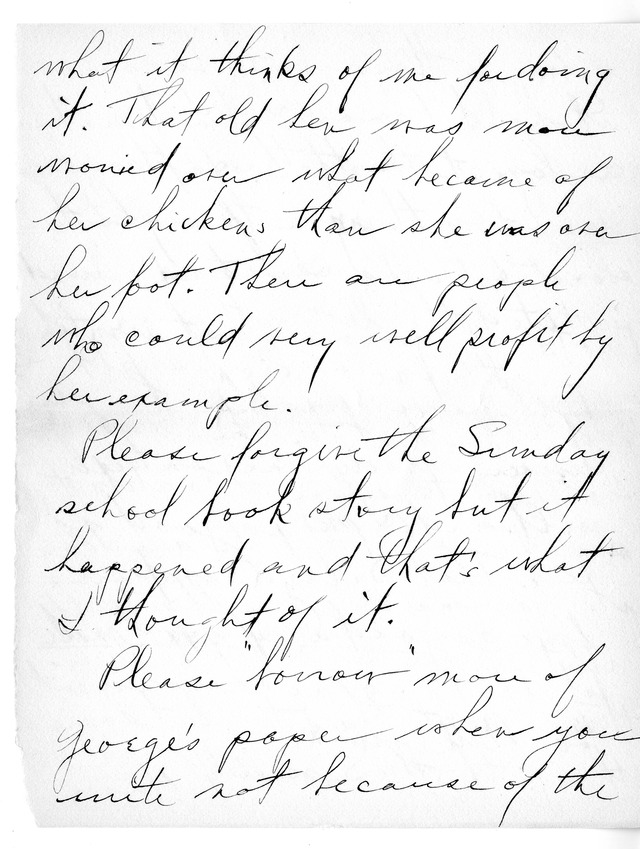 what it thinks of me for doing
it. That old hen was more
worried over what became of
her chickens than she was over
her foot. There are people
who could very well profit by
her example.
Please forgive the Sunday
school book story but it
happened and that's what
I thought of it.
Please "borrow" more of
George's paper when you
write not because of the